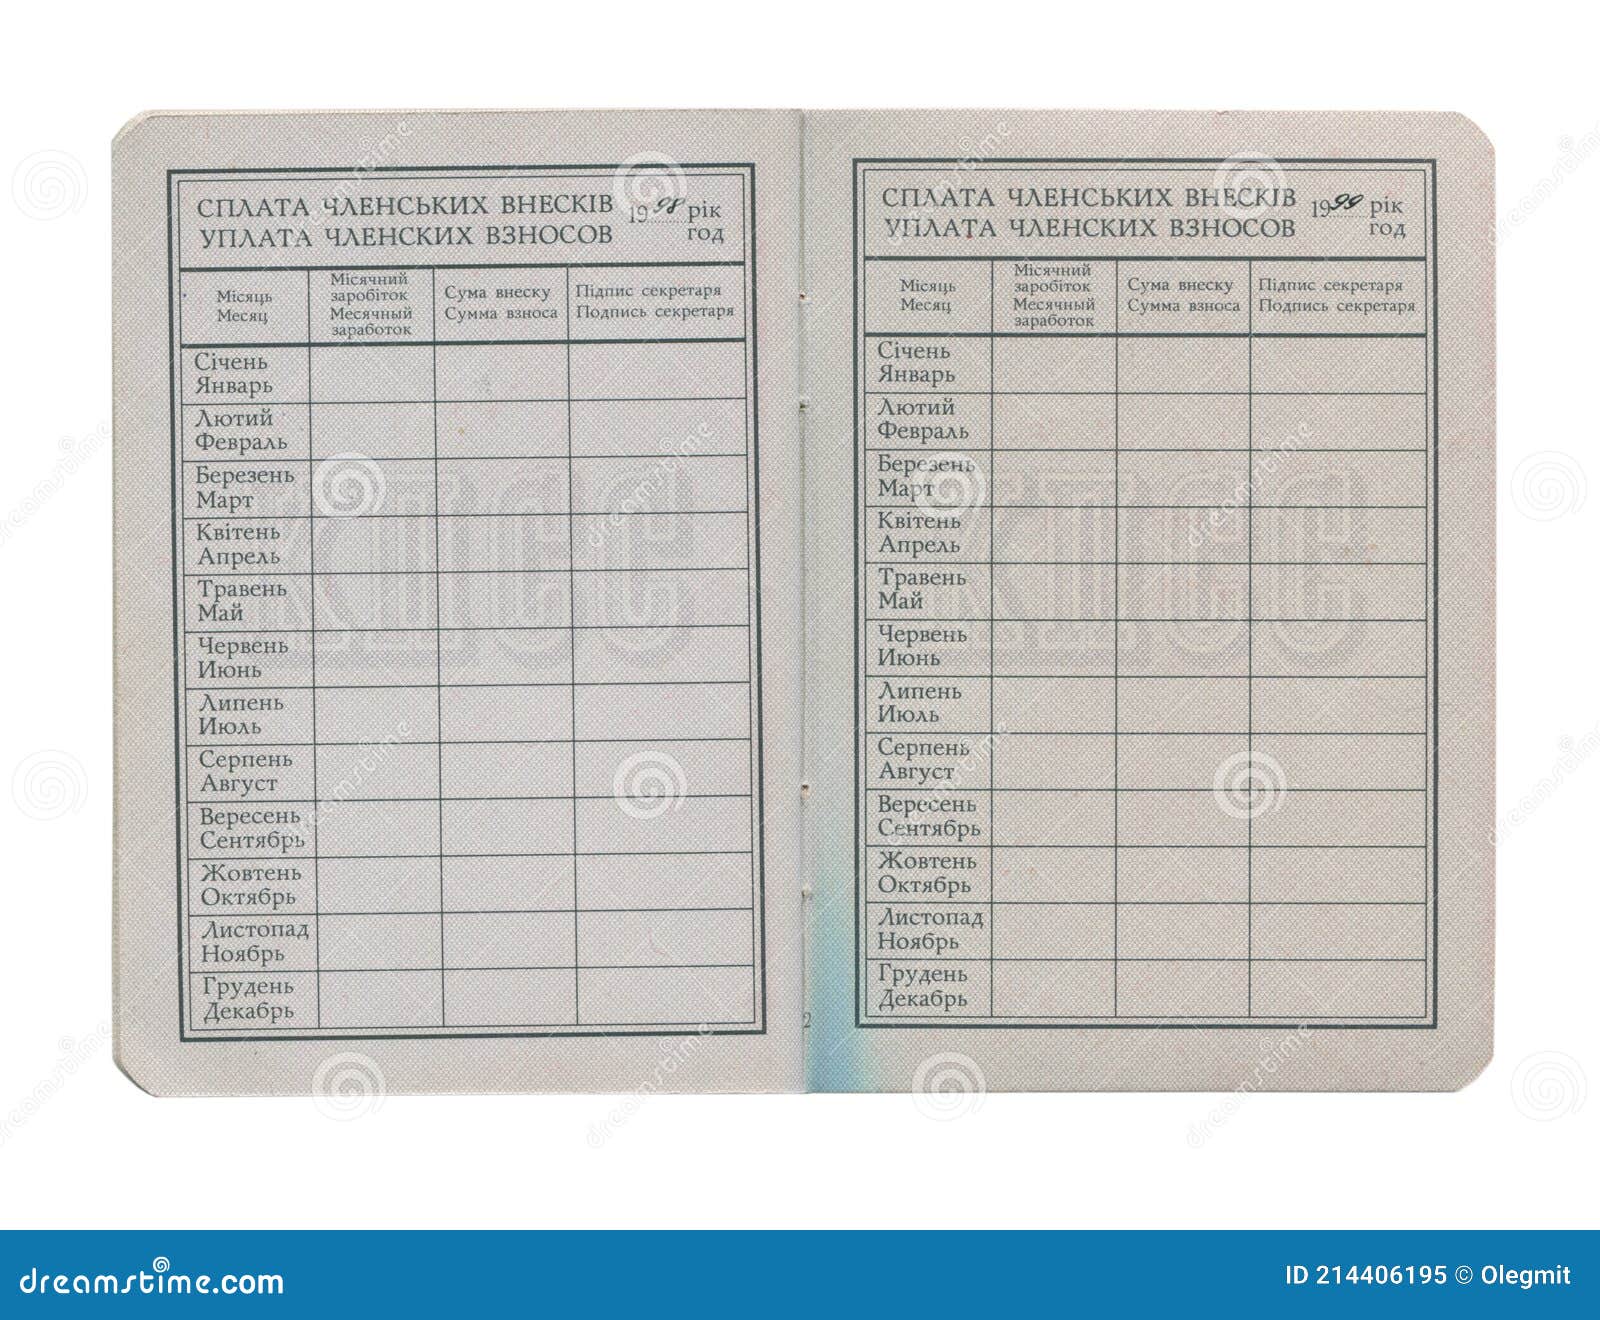 СПЛАТА ЧЛЕНСЬКИХ ВНЕСКІВ 1998 рік
УПЛАТА ЧЛЕНСКИХ ВЗНОСОВ год
Місяць
Месяц
Місячний
заробіток
Месячный
заработок
Сума внеску
Сумма взноса
Підпис секретаря
Подпись секретаря
Січень
Январь
Лютий
Февраль
Березень
Март
Квітень
Апрель
Травень
Май
Червень
Июнь
Липень
Июль
Серпень
Август
Вересень
Сентябрь
Жовтень
Октябрь
Листопад
Ноябрь
Грудень
Декабрь
2
СПЛАТА ЧЛЕНСЬКИХ ВНЕСКІВ 1999 рік
УПЛАТА ЧЛЕНСКИХ ВЗНОСОВ год
Місяць
Месяц
Місячний
заробіток
Месячный
заработок
Сума внеску
Сумма взноса
Підпис секретаря
Подпись секретаря
Січень
Январь
Лютий
Февраль
Березень
Март
Квітень
Апрель
Травень
Май
Червень
Июнь
Липень
Июль
Серпень
Август
Вересень
Сентябрь
Жовтень
Октябрь
Листопад
Ноябрь
Грудень
Декабрь
dreamstime.com
ID 214406195 © Olegmit